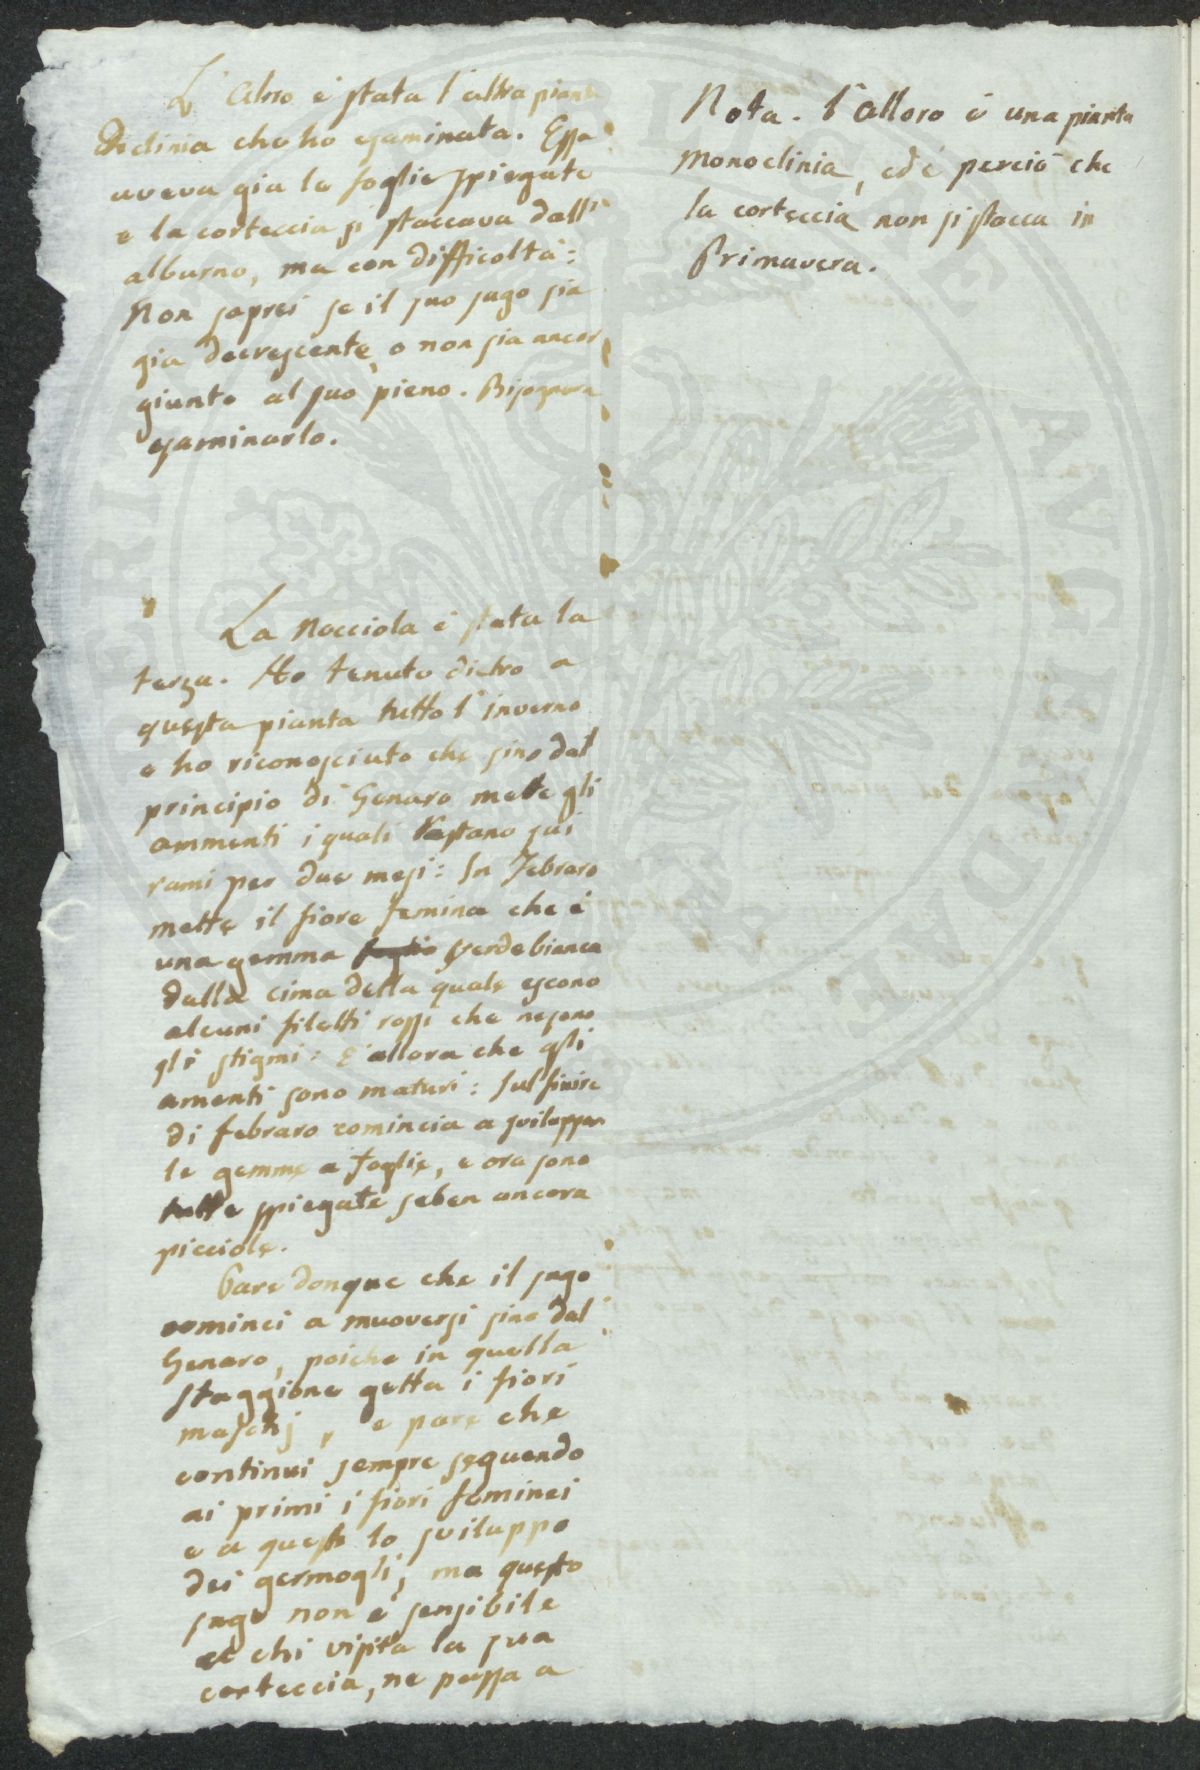 L'Alno è stata l'altra pianta
diclinia che ho esaminata. Essa
aveva gia le foglie spiegate
e la corteccia si staccava dall'
alburno, ma con difficoltà:
Non saprei se il suo sugo sia
gia decrescente, o non sia ancor
giunto al suo pieno. Bisogna
esaminarlo.
La Nocciola è stata la
terza. Ho tenuto dietro a
questa pianta tutto l'inverno
e ho riconosciuto che sino dal
principio di Genaro mette gli
ammenti i quali restano sui
rami per due mesi: In Febraro
mette il fiore femina che è
una gemma foglio verdebianca
dalla cima della quale escono
alcuni filetti rossi che ne sono
gli stigmi: E allora che gli
amenti sono maturi: Sul finire
di febraro comincia a sviluppar
le gemme a foglie, e ora sono
tutte spiegate seben ancora
picciole.
Pare donque che il sugo
cominci a muoversi sino dal
Genaro, poiche in quella
staggione getta i fiori
maschj, e pare che
continui sempre seguendo
ai primi i fiori feminei
e a questi lo sviluppo
dei germogli; ma questo
sugo non è sensibile
a chi visita la sua
corteccia, ne passa a
Nota. l'alloro è una pianta
Monoclinia, ed è perciò che
la corteccia non si stacca in
Primavera.
PERI
PUBLICAE
AUGENDAE